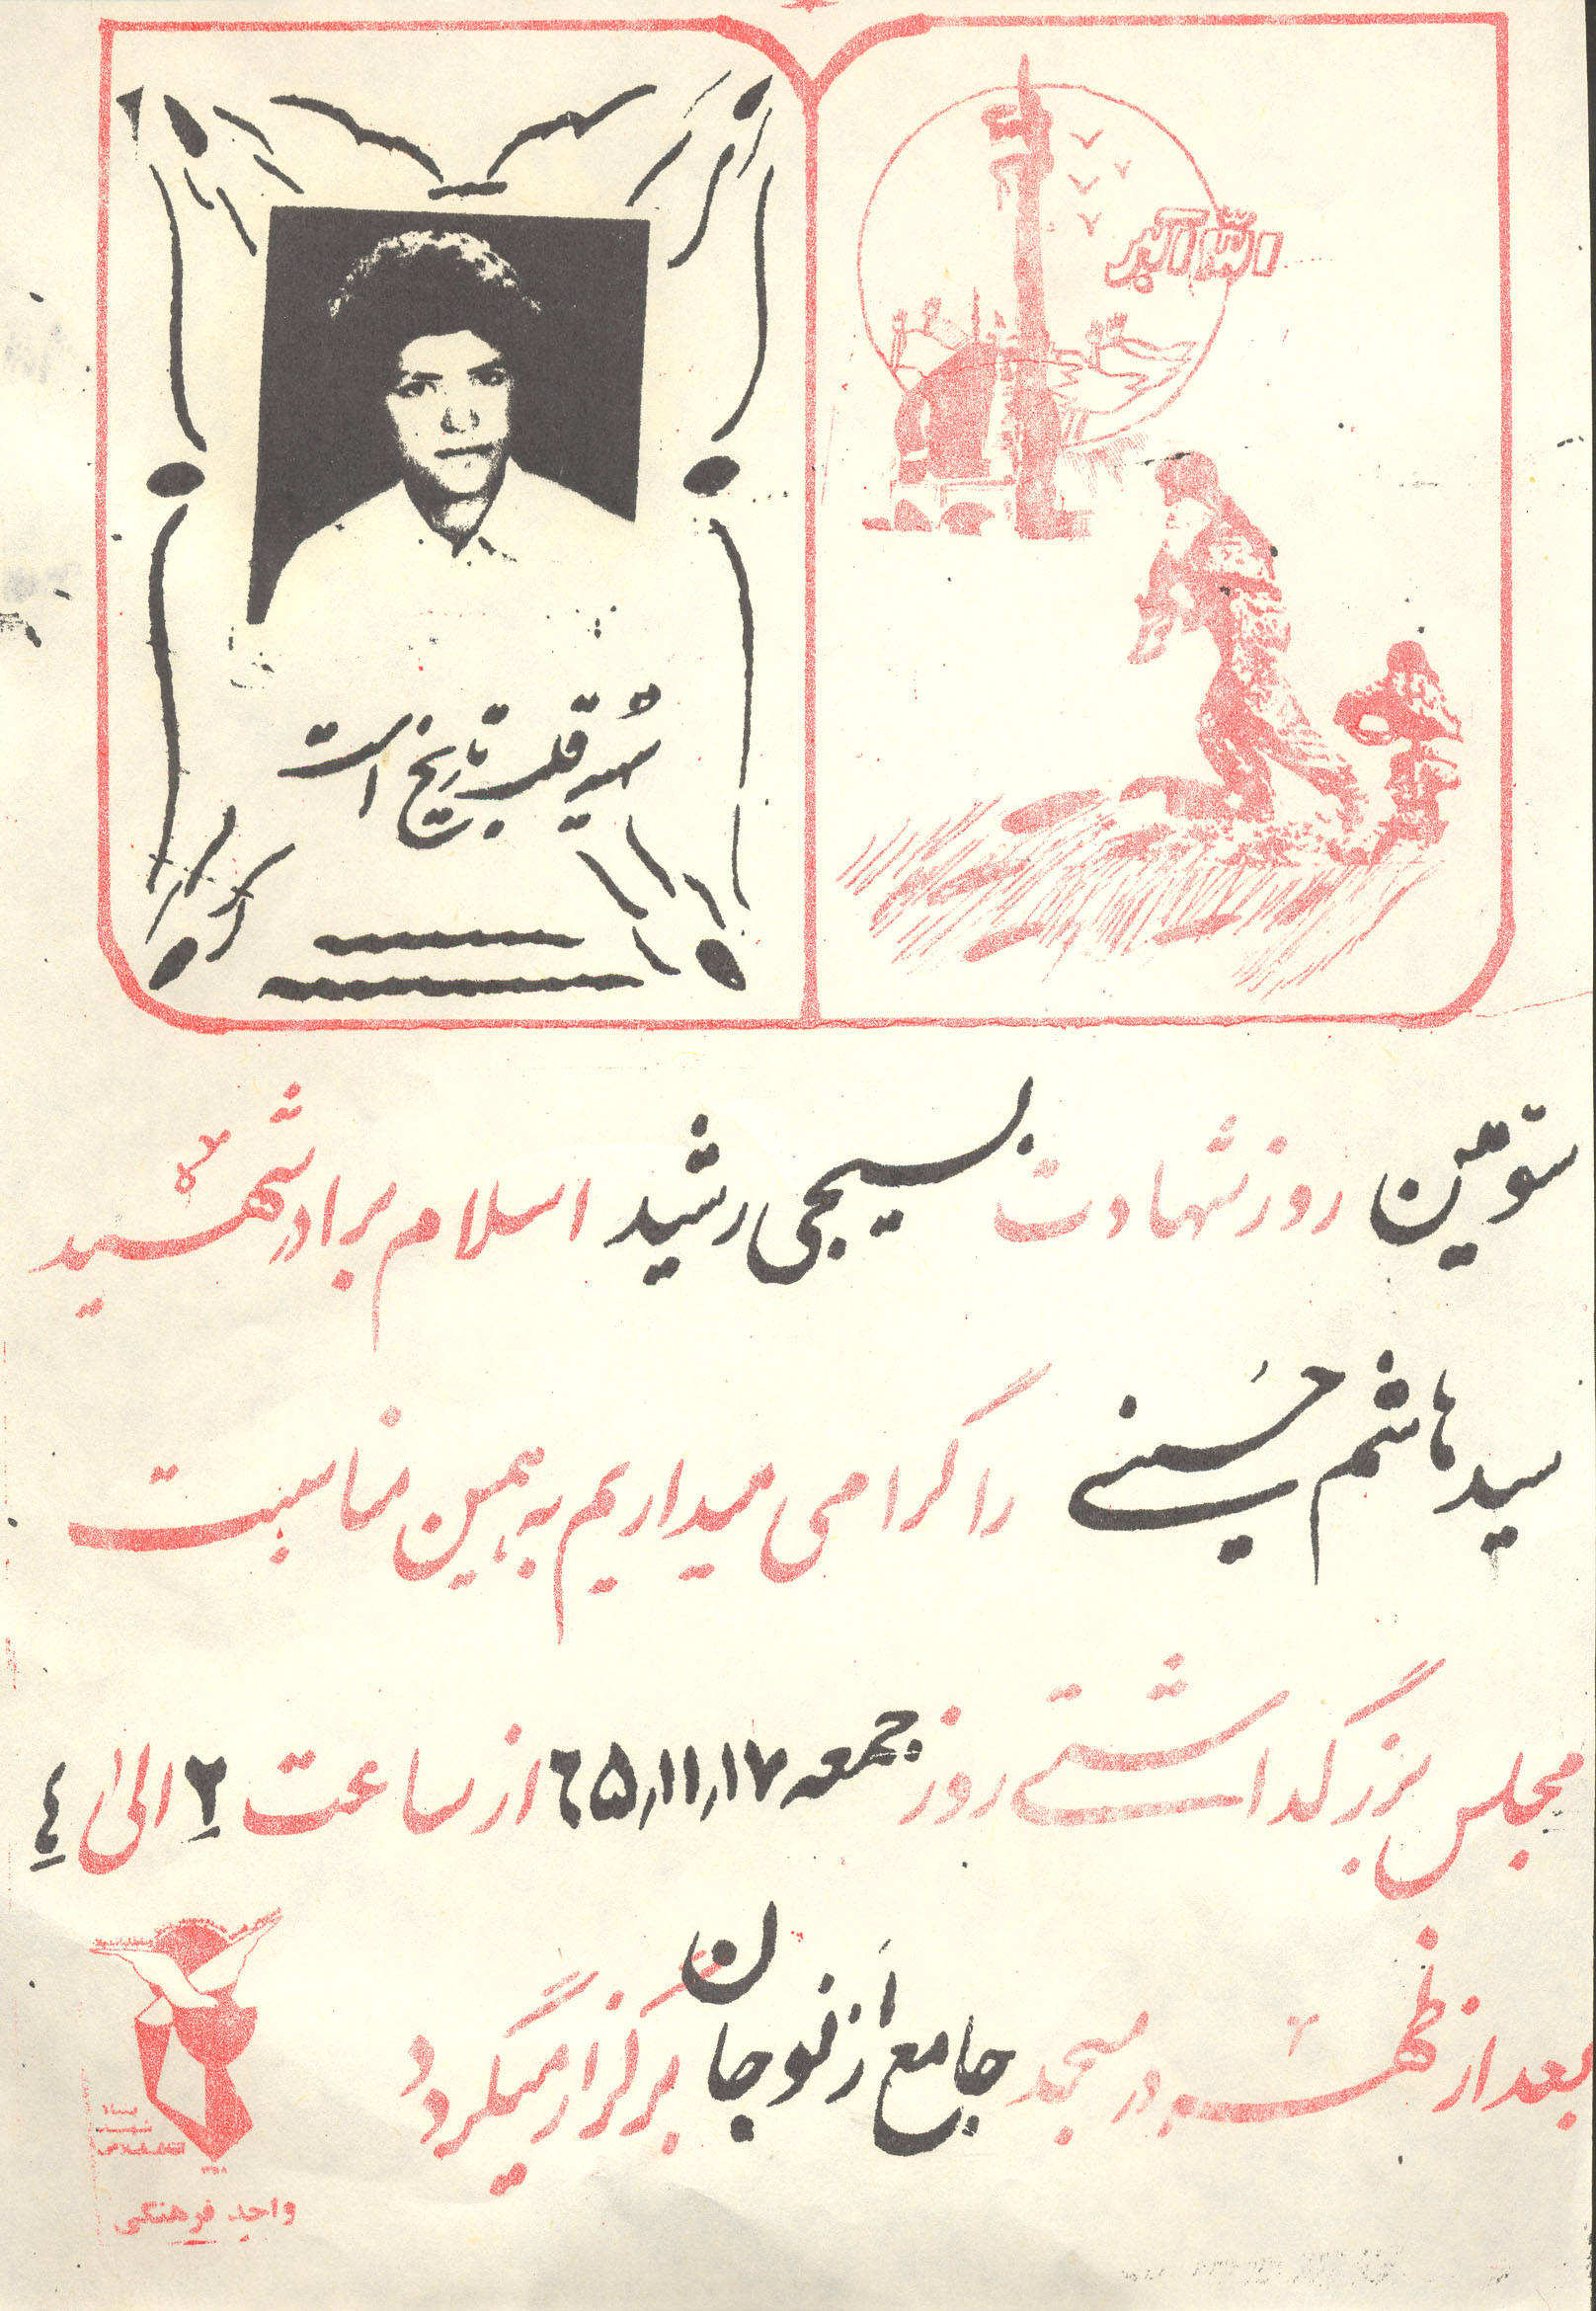 الله اکبر
شهید قلب تاریخ است
سوّمین روز شهادت بسیجی رشید اسلام برادر شهید
سید هاشم حسینی را گرامی میداریم به همین مناسبت
مجلس بزرگداشتی روز جمعه ۶۵،۱۱،۱۷ از ساعت ۲ الی ٤
بعد از ظهر در مسجد جامع اَزنوجان برگزار میگردد
بنیاد
شهید
انقلاب اسلامی
واحد فرهنگی